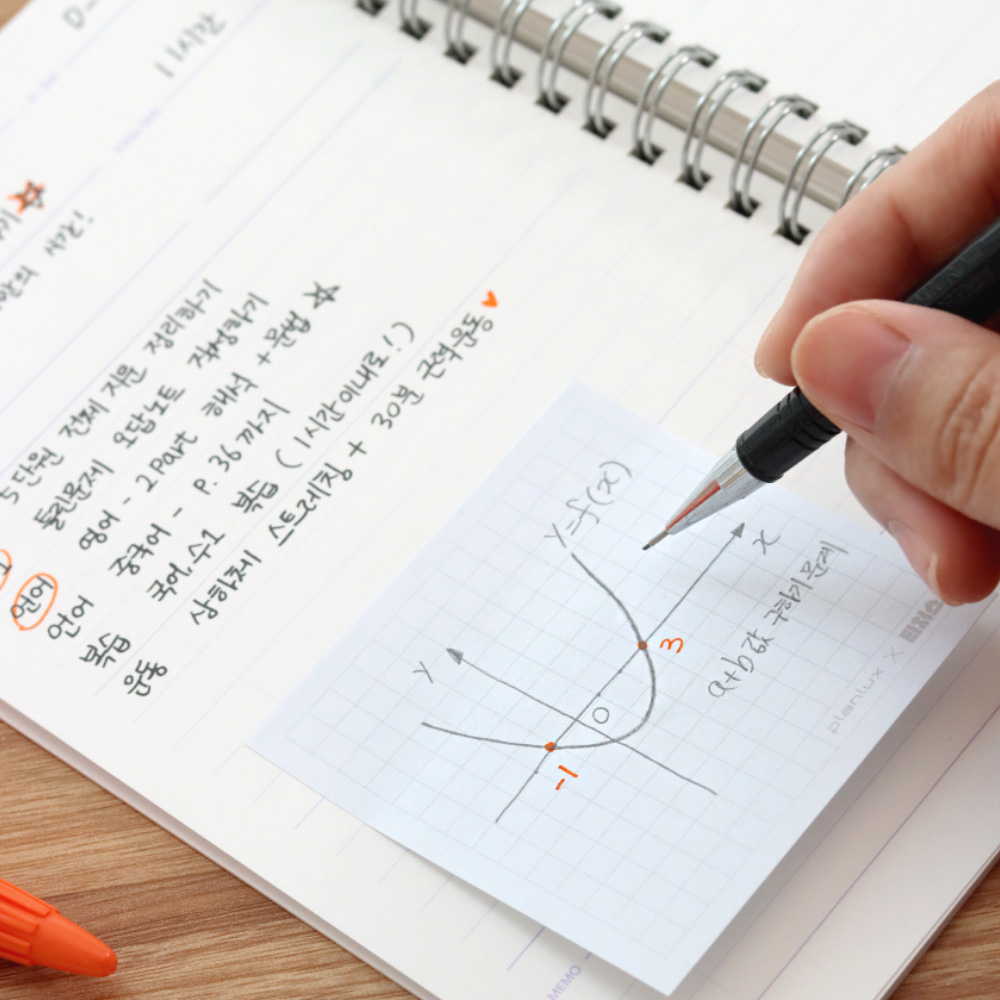 11시간
시간!
5단원 전체 지문 정리하기
틀린문제 오답노트 작성하기
영어 - 2Part 해석 + 문법 ☆
중국어 - P. 36 까지
국어, 수1 복습 (1시간이내로!)
상하체 스트레칭 + 30분 근력운동 ♥
언어
언어
복습
운동
y=f(x)
x
y
0
3
-1
a+b 값 구하기 문제
planlux X
MEMO